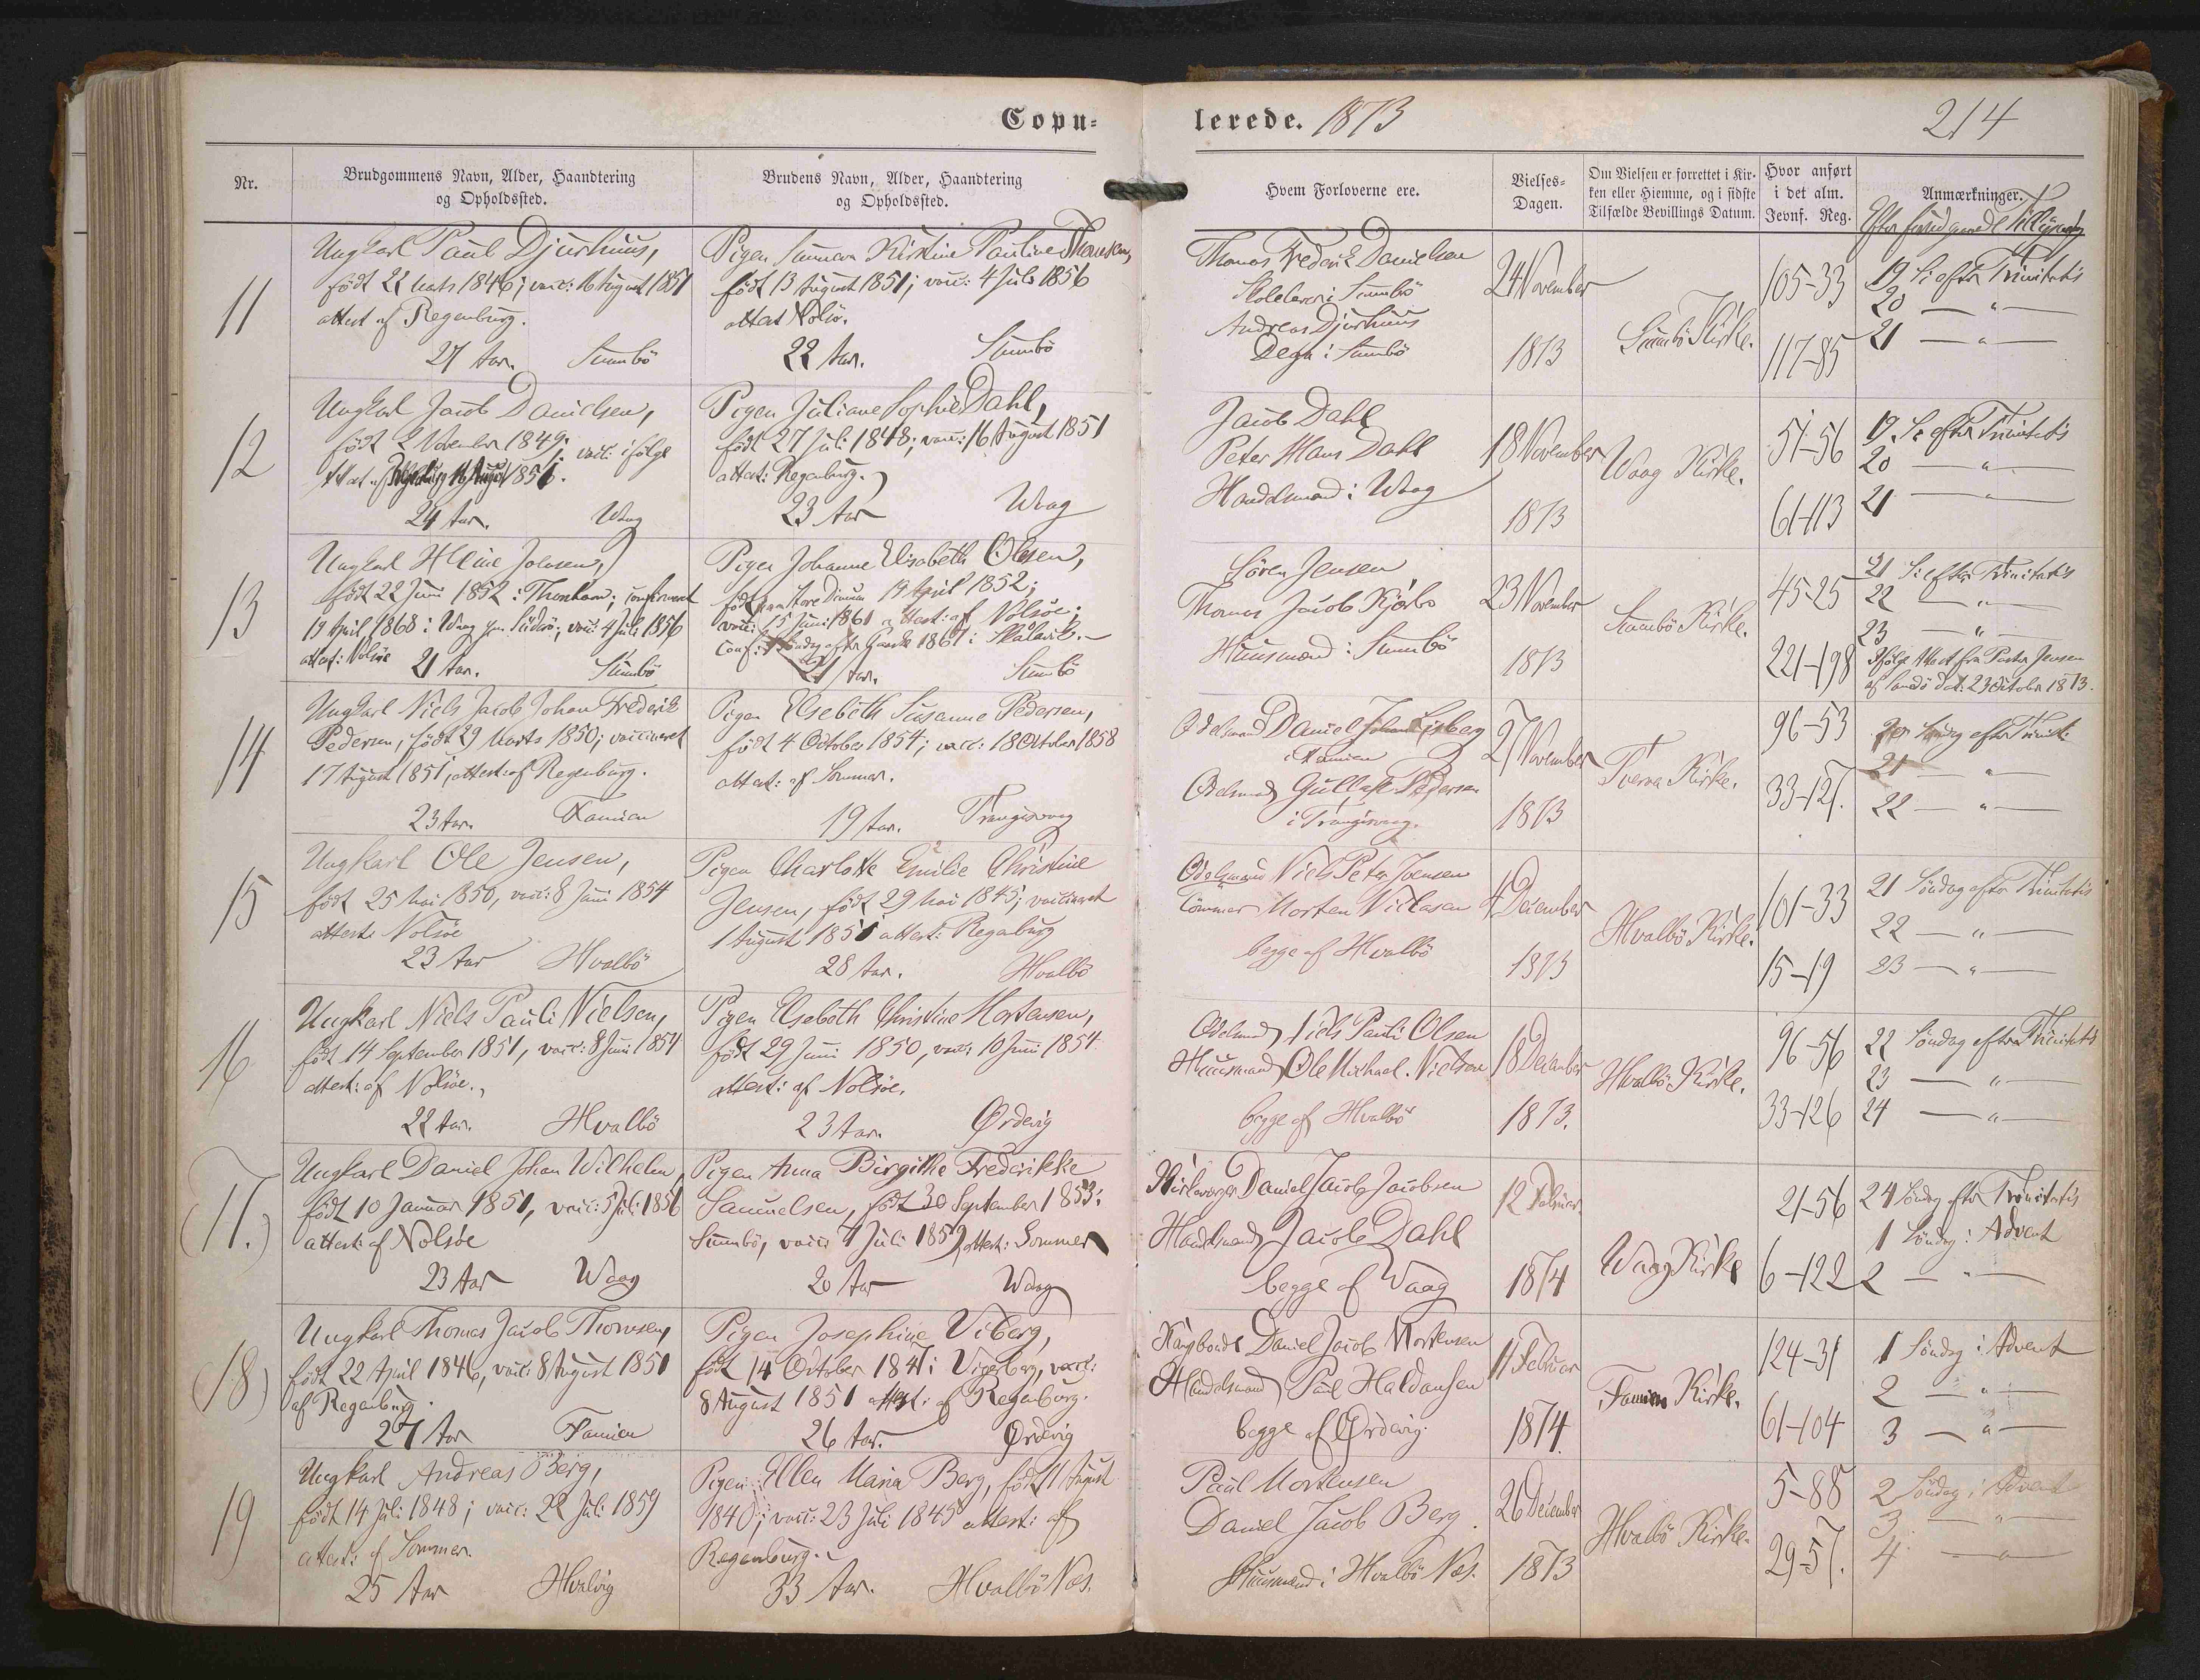 Copu=
lerede. 1873
214
Nr.
Brudgommens Navn, Alder, Haandtering
og Opholdssted.
Brudens Navn, Alder, Haandtering
og Opholdssted.
Hvem Forloverne ere.
Vielses=
Dagen.
Om Vielsen er forrettet i Kir=
ken eller Hiemme, og i sidste
Tilfælde Bevillings Datum.
Hvor anført
i det alm.
Jevnf. Reg.
Anmærkninger.
Efter foregaaende Tillysning
11
Ungkarl Paul Djurhuus,
født 22 Marts 1846; vacc: 16 August 1851
attest af Regenburg.
27 Aar. Sumbö
Pigen Sunneva Kirstine Pauline Thomsen,
født 13 August 1851; vacc: 4 Juli 1856
attest Nolsöe.
22 Aar. Sumbö
Thomas Frederik Danielsen
Skolelærer i Sumbö
Andreas Djurhuus
Degn i Sumbö
24 November
1873
Sumbö Kirke.
105-33
117-85
19 S. efter Trinitatis
20 — " —
21 — " —
12
Ungkarl Jacob Danielsen,
født 2 November 1849; vacc: ifølge
Attest af 16 August 1851.
24 Aar. Waag
Pigen Juliane Sophie Dahl,
født 27 Juli 1848; vacc: 16 August 1851
attest: Regenburg.
23 Aar Waag
Jacob Dahl
Peter Hans Dahl
Handelsmænd i Waag
18 November
1873
Waag Kirke.
51-56
61-113
19 S. efter Trinitatis
20 — " —
21 — " —
13
Ungkarl Heine Johnsen,
født 22 Juni 1852 i Thorshavn; confirmeret
19 April 1868 i Waag paa Süderö; vacc: 4 Juli 1856
attest: Nolsöe 21 Aar. Sumbö
Pigen Johanne Elisabeth Olesen,
født paa Store Dimon 19 April 1852;
vacc: 15 Juni 1861 attest: af Nolsöe;
conf: 1 Søndag efter Paaske 1867 i Skaalevik.
21 Aar. Sumbö
Søren Jensen
Thomas Jacob Kjærbo
Huusmænd i Sumbö
23 November
1873
Sumbö Kirke.
45-25
221-198
21 S. efter Trinitatis
22 — " —
23 — " —
Ifølge Attest fra Pastor Jensen
af Sandö dat: 23 October 1873.
14
Ungkarl Niels Jacob Johan Frederik
Pedersen, født 29 Marts 1850; vaccineret
17 August 1851, attest: af Regenburg.
23 Aar. Famien
Pigen Elsebeth Susanne Pedersen,
født 4 October 1854; vacc: 18 October 1858
attest: af Sommer.
19 Aar. Trangisvaag
Odelsmand Daniel Johan Lisberg
i Famien
Odelsmand Gullak Pedersen
i Trangisvaag.
27 November
1873
Tveraa Kirke.
96-53
33-127.
20 Søndag efter Trinit:
21 — " —
22 — " —
15
Ungkarl Ole Jensen,
født 25 Mai 1850, vacc: 8 Juni 1854
attest: Nolsöe
23 Aar Hvalbö
Pigen Charlotte Emilde Christine
Jensen, født 29 Mai 1845; vaccineret
1 August 1851 attest: Regenburg
28 Aar. Hvalbö
Odelsmand Niels Peter Joensen
Tömmer Morten Niclasen
begge af Hvalbö
4 December
1873
Hvalbö Kirke.
101-33
15-19
21 Söndag efter Trinitatis
22 — " —
23 — " —
16
Ungkarl Niels Pauli Nielsen,
født 14 September 1851, vacc: 8 Juni 1854
attest: af Nolsöe.
22 Aar. Hvalbö
Pigen Elsebeth Christine Mortensen,
født 29 Juni 1850, vacc: 10 Juni 1854
attest: af Nolsöe.
23 Aar. Ørdevig
Odelsmand Niels Pauli Olsen
Huusmand Ole Michael Nielsen
begge af Hvalbö
18 December
1873.
Hvalbö Kirke.
96-56
33-126
22 Søndag efter Trinitatis
23 — " —
24 — " —
17.)
Ungkarl Daniel Johan Wilhelm,
født 10 Januar 1851, vacc: 5 Juli 1856
attest: af Nolsöe
23 Aar Waag
Pigen Anna Birgithe Frederikke
Samuelsen, født 30 September 1853 i
Sumbö, vacc: 4 Juli 1859, attest: Sommer
20 Aar Waag
Kirkeværger Daniel Jacob Jacobsen
Handelsmand Jacob Dahl
begge af Waag
12 Februar
1874
Waag Kirke
21-56
6-122
24 Søndag efter Trinitatis
1 Söndag i Advent
2 — " —
18)
Ungkarl Thomas Jacob Thomsen,
født 22 April 1846, vacc: 8 August 1851
af Regenburg.
27 Aar Famien
Pigen Josephine Viberg,
født 14 October 1847 i Vigerberg, vacc:
8 August 1851 attest: af Regenburg.
26 Aar. Ørdevig
Kongsbonde Daniel Jacob Mortensen
Handelsmand Poul Haldansen
begge af Ørdevig.
11 Februar
1874.
Famien Kirke.
124-31
61-104
1 Søndag i Advent
2 — " —
3 — " —
19
Ungkarl Andreas Berg,
født 14 Juli 1848; vacc: 22 Juli 1859
attest: af Sommer.
25 Aar Hvalvig
Pigen Ellen Maria Berg, født 11 August
1840; vacc: 23 Juli 1845 attest: af
Regenburg.
33 Aar. Hvalbö Næs.
Paul Mortensen
Daniel Jacob Berg.
Huusmænd i Hvalbö Næs.
26 December
1873
Hvalbö Kirke.
5-88
29-57.
2 Söndag i Advent
3 — " —
4 — " —